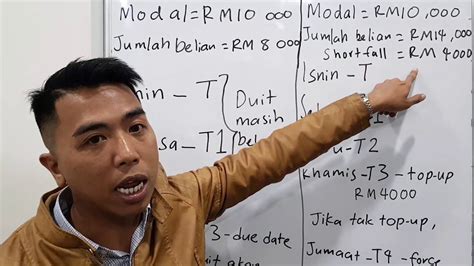 Modal = RM10 000
Jumlah belian = RM 8 000
nin - T
Duit
masih
sa - T1
bel
3 - due date
Duit akan
Modal = RM10,000
Jumlah belian = RM14,000
Shortfall = RM 4000
Isnin - T
- T2
Khamis - T3 - top-up
RM4000
Jika tak top-up,
Jumaat - T4 - force